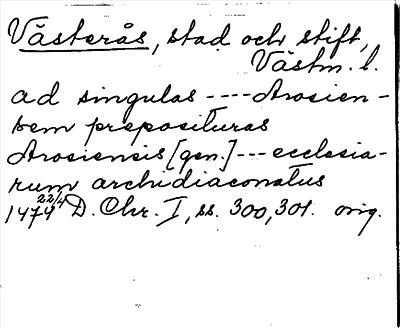 Västerås, stad och stift,
Västm. l.
ad singulas ---- Arosien-
sem preposituras
Arosiensis [gen.] --- ecclesia-
rum archidiaconatus
1474 22/4 D. Chr. I, ss. 300, 301. orig.